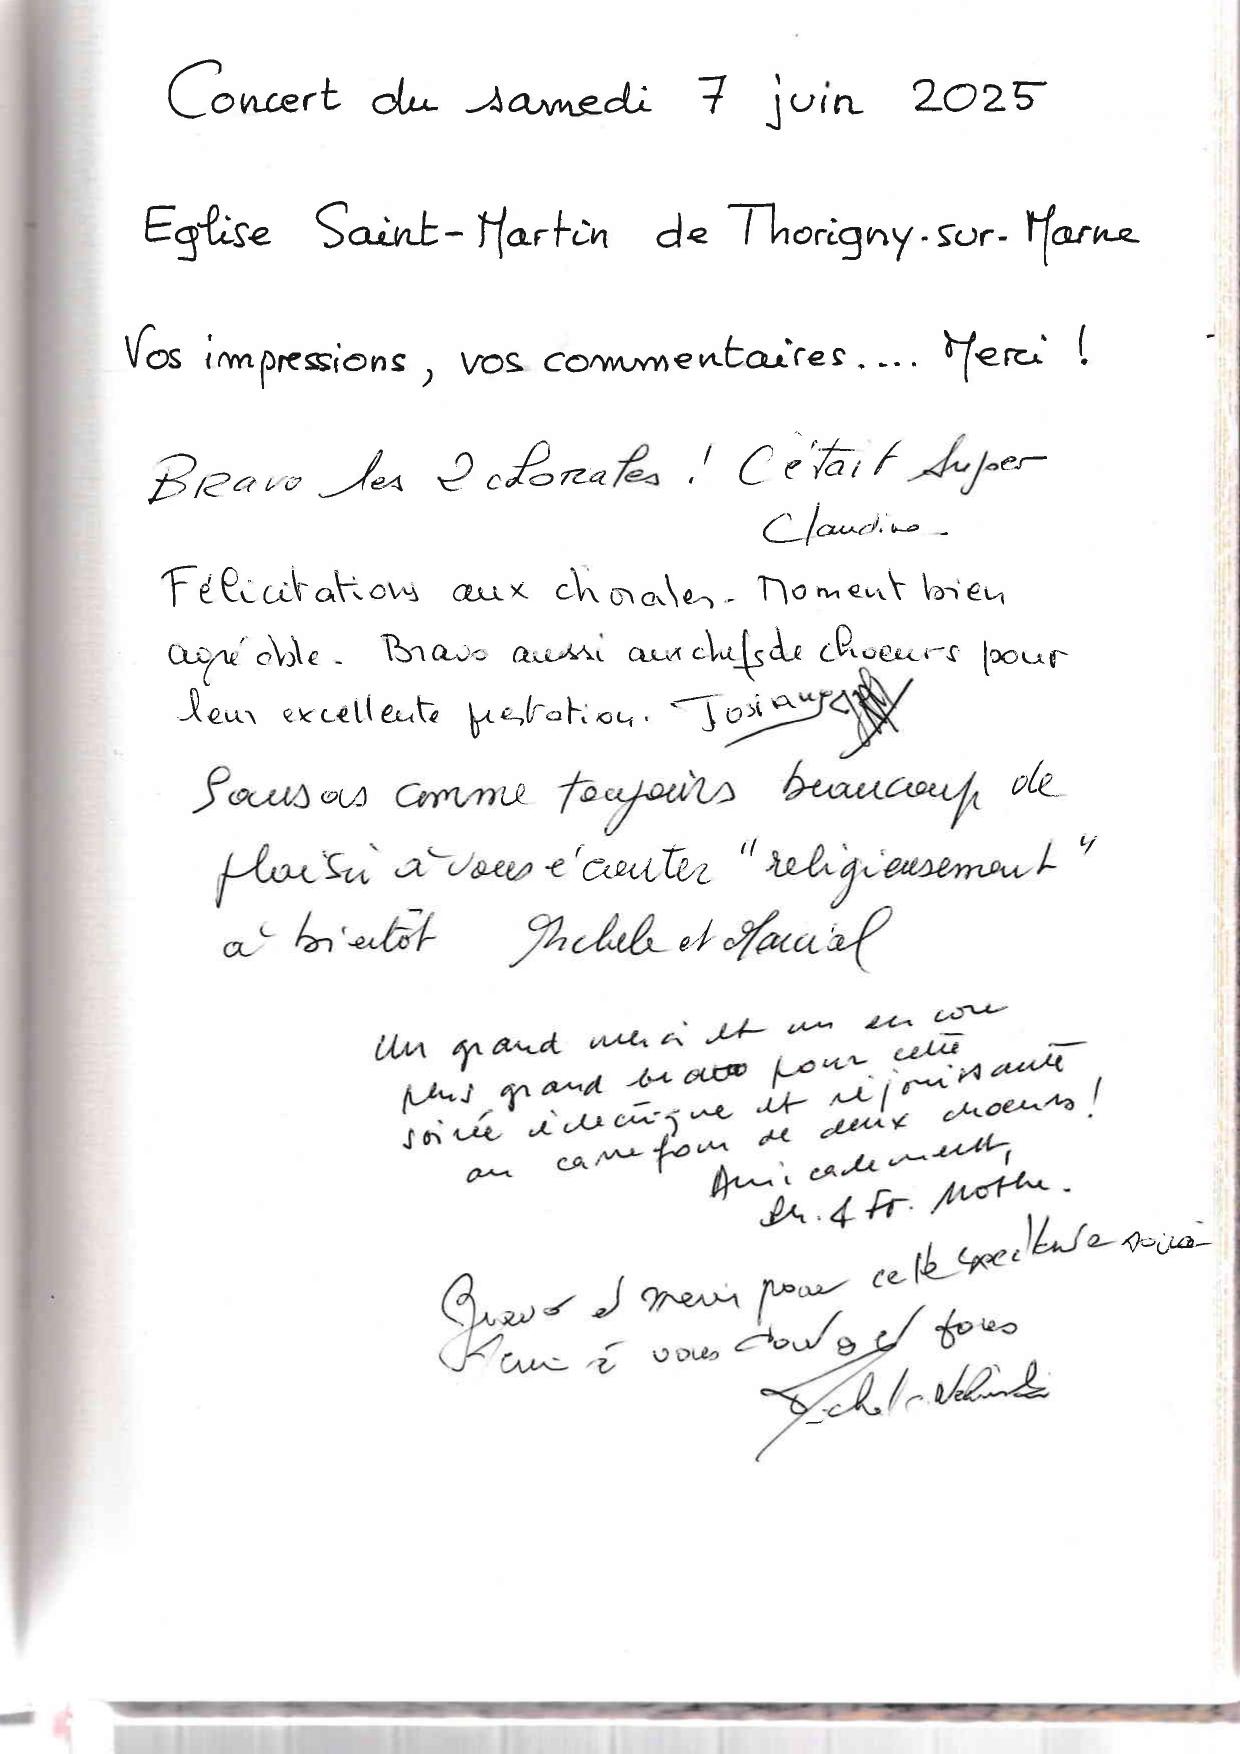 Concert du samedi 7 juin 2025
Eglise Saint-Martin de Thorigny-sur-Marne
Vos impressions, vos commentaires.... Merci !
Bravo les 2 chorales ! C'était super
Claudine -
Félicitations aux chorales - Moment bien
agréable - Bravo aussi aux chefs de choeurs pour
leur excellente prestation. Josiane
comme toujours beaucoup de
plaisir à vous écouter "religieusement"
à bientôt Michèle et Marcial
Un grand merci et un encore
plus grand bravo pour cette
soirée éclectique et réjouissante
au carrefour de deux choeurs !
Amicalement,
& Fr. Mothe.
Bravo et merci pour cette soirée
Merci à vous toutes et tous